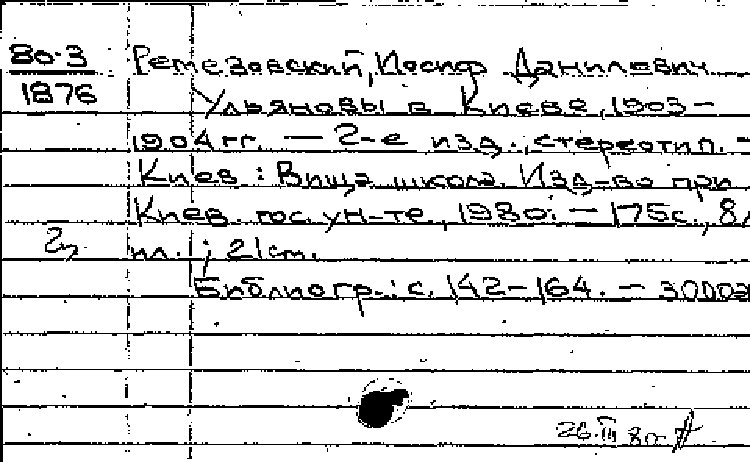 80-3
1876
Ремезовский, Иосиф Данилович
Ульяновы в Киеве, 1903-
1904 гг. — 2-е изд., стереотип. -
Киев: Вища школа. Изд-во при
Киев. гос. ун-те, 1980. — 175с., 8
ил.; 21см.
Библиогр.: с. 142-164. — 3000э
26.III 80